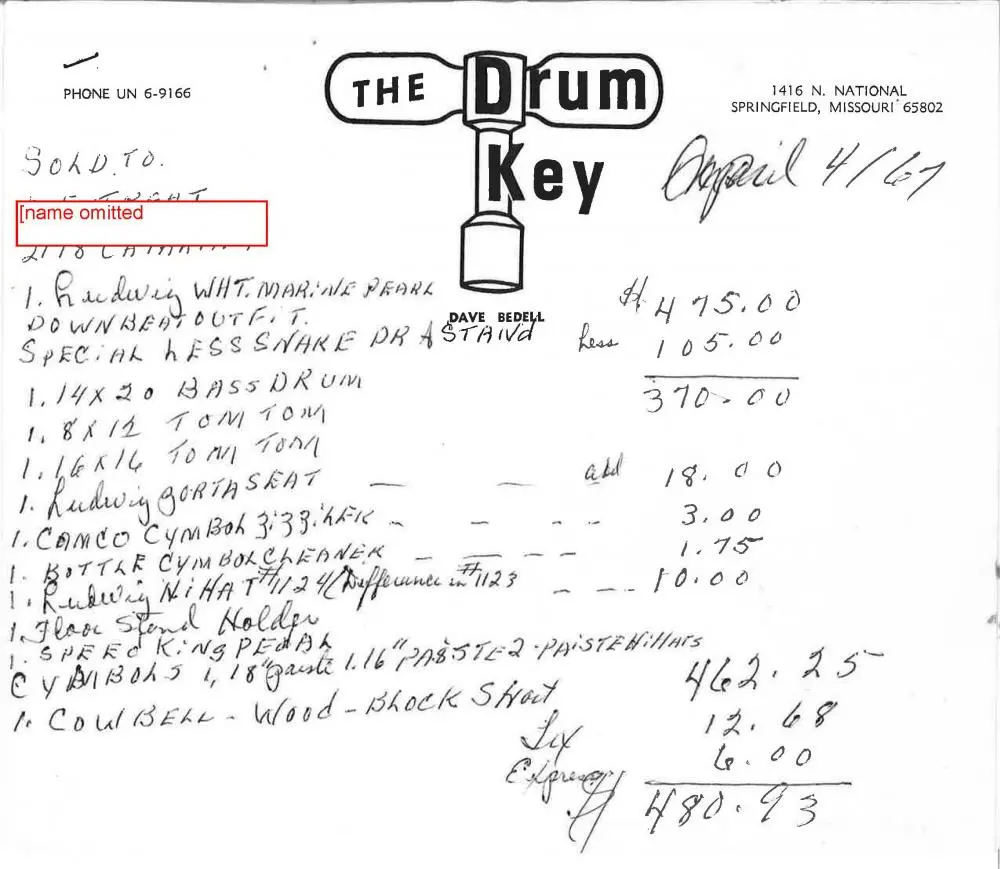 PHONE UN 6-9166
THE Drum Key
1416 N. NATIONAL
SPRINGFIELD, MISSOURI 65802
DAVE BEDELL
April 4/67
SOLD. TO.
[name omitted
1. Ludwig WHT. MARINE PEARL $ 475.00
DOWNBEAT OUTFIT.
SPECIAL LESS SNARE DR & STAND Less 105.00
370.00
1. 14X20 BASS DRUM
1. 8X12 TOM TOM
1. 16X16 TOM TOM
1. Ludwig PORTASEAT — — add 18.00
1. CAMCO CYMBOL - - - - 3.00
1. BOTTLE CYMBOL CLEANER — — - - 1.75
1. Ludwig HiHAT #1124 (Difference in #1123 - - - 10.00
1. Floor Stand Holder
1. SPEED KiNg PEDAL
CYMBOLS 1, 18" paiste 1. 16" PAISTE 2 - PAiSTE HiHats 462.25
1. COWBELL - Wood - BLOCK
Tax 12.68
Express 6.00
480.93